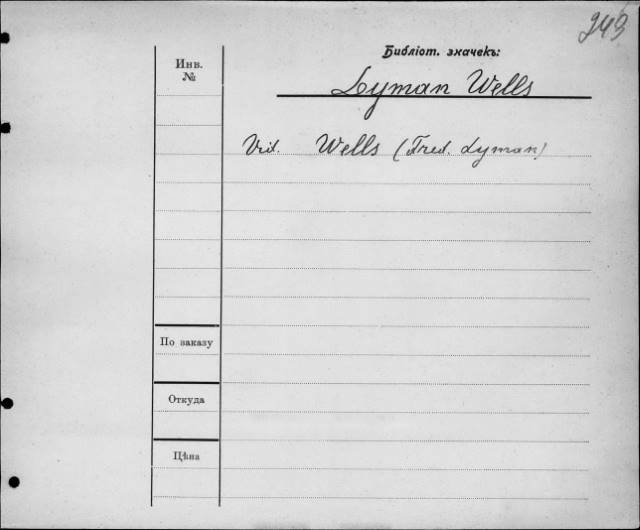 243
Библіот. значекъ:
Инв.
№
Lyman Wells
Vid. Wells (Fred. Lyman)
По заказу
Откуда
Цѣна